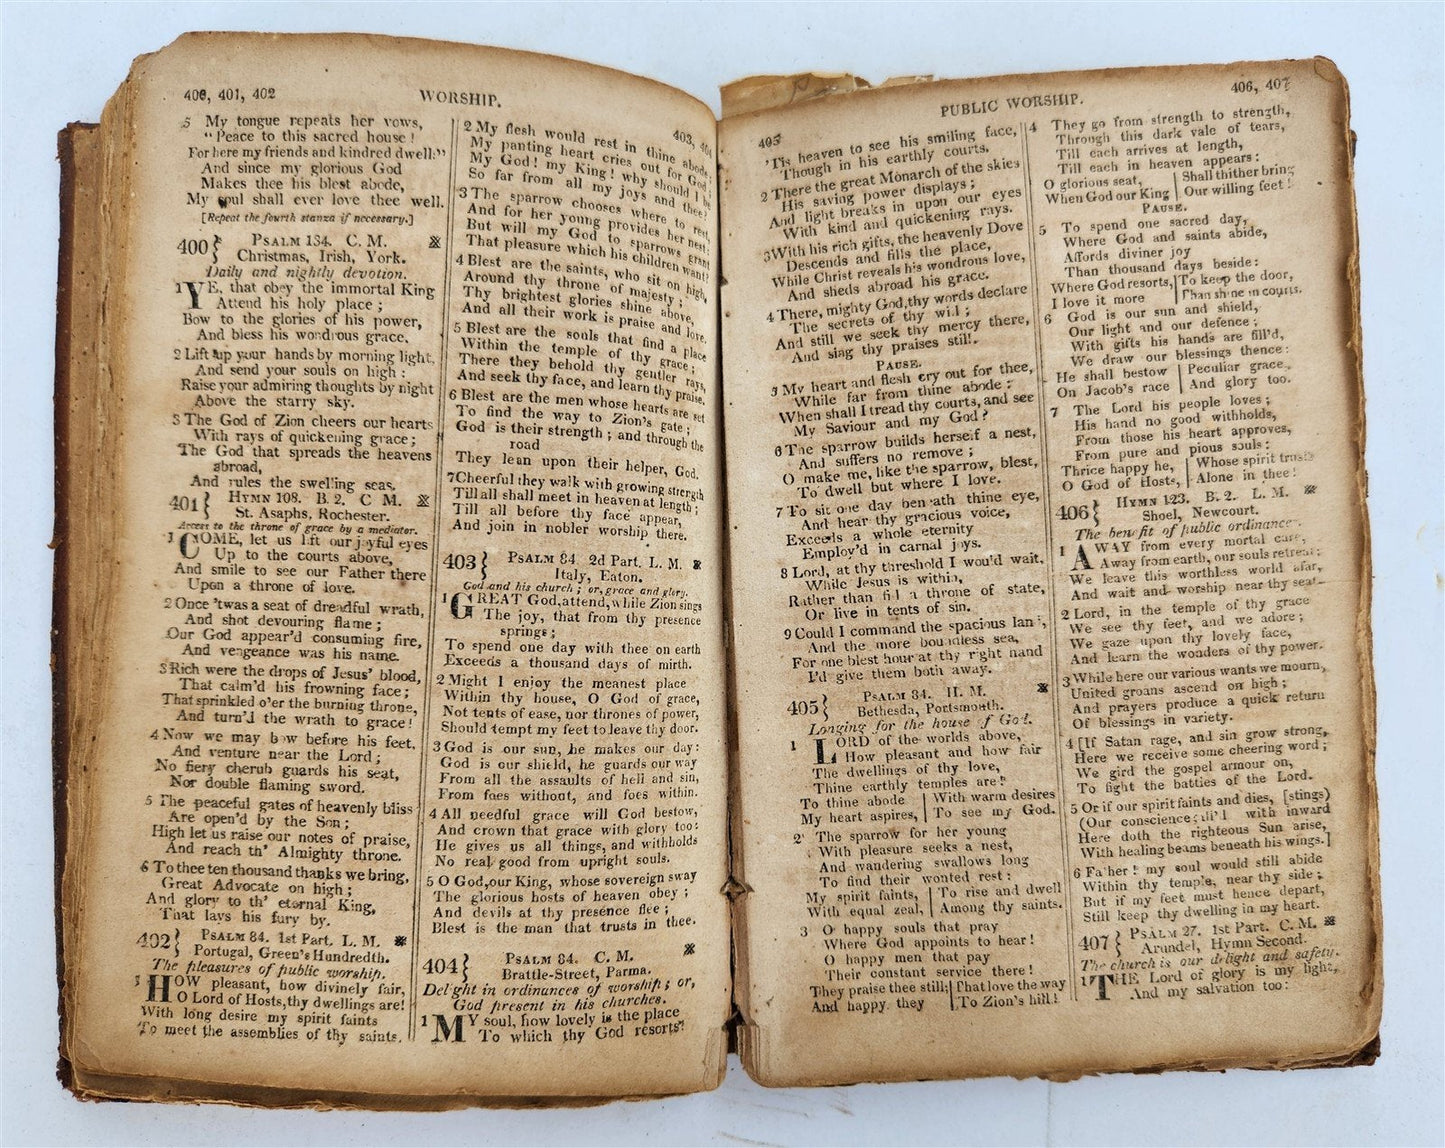 400, 401, 402
WORSHIP.
403, 404
5 My tongue repeats her vows,
"Peace to this sacred house!
For here my friends and kindred dwell:"
And since my glorious God
Makes thee his blest abode,
My soul shall ever love thee well.
[Repeat the fourth stanza if necessary.]
400} PSALM 134. C. M.
Christmas, Irish, York.
Daily and nightly devotion.
1 YE, that obey the immortal King
Attend his holy place;
Bow to the glories of his power,
And bless his wondrous grace.
2 Lift up your hands by morning light,
And send your souls on high:
Raise your admiring thoughts by night
Above the starry sky.
3 The God of Zion cheers our hearts
With rays of quickening grace;
The God that spreads the heavens
abroad,
And rules the swelling seas.
401} HYMN 108. B. 2. C M.
St. Asaphs, Rochester.
Access to the throne of grace by a mediator.
1 COME, let us lift our joyful eyes
Up to the courts above,
And smile to see our Father there
Upon a throne of love.
2 Once 'twas a seat of dreadful wrath,
And shot devouring flame;
Our God appear'd consuming fire,
And vengeance was his name.
3 Rich were the drops of Jesus' blood,
That calm'd his frowning face;
That sprinkled o'er the burning throne,
And turn'd the wrath to grace!
4 Now we may bow before his feet,
And venture near the Lord;
No fiery cherub guards his seat,
Nor double flaming sword.
5 The peaceful gates of heavenly bliss
Are open'd by the Son;
High let us raise our notes of praise,
And reach th' Almighty throne.
6 To thee ten thousand thanks we bring,
Great Advocate on high;
And glory to th' eternal King,
That lays his fury by.
402} PSALM 84. 1st Part. L. M.
Portugal, Green's Hundredth.
The pleasures of public worship.
1 HOW pleasant, how divinely fair,
O Lord of Hosts, thy dwellings are!
With long desire my spirit faints
To meet the assemblies of thy saints.
2 My flesh would rest in thine abode,
My panting heart cries out for God;
My God! my King! why should I be
So far from all my joys and thee?
3 The sparrow chooses where to rest,
And for her young provides her nest:
But will my God to sparrows grant
That pleasure which his children want?
4 Blest are the saints, who sit on high,
Around thy throne of majesty;
Thy brightest glories shine above,
And all their work is praise and love.
5 Blest are the souls that find a place
Within the temple of thy grace;
There they behold thy gentler rays,
And seek thy face, and learn thy praise.
6 Blest are the men whose hearts are set
To find the way to Zion's gate;
God is their strength; and through the
road
They lean upon their helper, God.
7 Cheerful they walk with growing strength
Till all shall meet in heaven at length;
Till all before thy face appear,
And join in nobler worship there.
403} PSALM 84. 2d Part. L. M.
Italy, Eaton.
God and his church; or, grace and glory.
1 GREAT God, attend, while Zion sings
The joy, that from thy presence
springs;
To spend one day with thee on earth
Exceeds a thousand days of mirth.
2 Might I enjoy the meanest place
Within thy house, O God of grace,
Not tents of ease, nor thrones of power,
Should tempt my feet to leave thy door.
3 God is our sun, he makes our day:
God is our shield, he guards our way
From all the assaults of hell and sin,
From foes without, and foes within.
4 All needful grace will God bestow,
And crown that grace with glory too:
He gives us all things, and withholds
No real good from upright souls.
5 O God, our King, whose sovereign sway
The glorious hosts of heaven obey;
And devils at thy presence flee;
Blest is the man that trusts in thee.
404} PSALM 84. C. M.
Brattle-Street, Parma.
Delight in ordinances of worship; or,
God present in his churches.
1 MY soul, how lovely is the place
To which thy God resorts!
405
PUBLIC WORSHIP.
406, 407
'Tis heaven to see his smiling face,
Though in his earthly courts.
2 There the great Monarch of the skies
His saving power displays;
And light breaks in upon our eyes
With kind and quickening rays.
3 With his rich gifts, the heavenly Dove
Descends and fills the place,
While Christ reveals his wondrous love,
And sheds abroad his grace.
4 There, mighty God, thy words declare
The secrets of thy will;
And still we seek thy mercy there,
And sing thy praises still.
PAUSE.
5 My heart and flesh cry out for thee,
While far from thine abode:
When shall I tread thy courts, and see
My Saviour and my God?
6 The sparrow builds herself a nest,
And suffers no remove;
O make me, like the sparrow, blest,
To dwell but where I love.
7 To sit one day beneath thine eye,
And hear thy gracious voice,
Exceeds a whole eternity
Employ'd in carnal joys.
8 Lord, at thy threshold I would wait,
While Jesus is within,
Rather than fill a throne of state,
Or live in tents of sin.
9 Could I command the spacious land,
And the more boundless sea,
For one blest hour at thy right hand
I'd give them both away.
405} PSALM 84. H. M.
Bethesda, Portsmouth.
Longing for the house of God.
1 LORD of the worlds above,
How pleasant and how fair
The dwellings of thy love,
Thine earthly temples are!
To thine abode | With warm desires
My heart aspires, | To see my God.
2 The sparrow for her young
With pleasure seeks a nest,
And wandering swallows long
To find their wonted rest:
My spirit faints, | To rise and dwell
With equal zeal, | Among thy saints.
3 O happy souls that pray
Where God appoints to hear!
O happy men that pay
Their constant service there!
They praise thee still; | That love the way
And happy they | To Zion's hill!
4 They go from strength to strength,
Through this dark vale of tears,
Till each arrives at length,
Till each in heaven appears:
O glorious seat, | Shall thither bring
When God our King | Our willing feet!
PAUSE.
5 To spend one sacred day,
Where God and saints abide,
Affords diviner joy
Than thousand days beside:
Where God resorts, | To keep the door,
I love it more | Than shine in courts.
6 God is our sun and shield,
Our light and our defence;
With gifts his hands are fill'd,
We draw our blessings thence:
He shall bestow | Peculiar grace,
On Jacob's race | And glory too.
7 The Lord his people loves;
His hand no good withholds,
From those his heart approves,
From pure and pious souls:
Thrice happy he, | Whose spirit trusts
O God of Hosts, | Alone in thee!
406} HYMN 123. B. 2. L. M.
Shoel, Newcourt.
The benefit of public ordinances.
1 AWAY from every mortal care,
Away from earth, our souls retreat;
We leave this worthless world afar,
And wait and worship near thy seat.
2 Lord, in the temple of thy grace
We see thy feet, and we adore;
We gaze upon thy lovely face,
And learn the wonders of thy power.
3 While here our various wants we mourn,
United groans ascend on high;
And prayers produce a quick return
Of blessings in variety.
4 [If Satan rage, and sin grow strong,
Here we receive some cheering word;
We gird the gospel armour on,
To fight the battles of the Lord.
5 Or if our spirit faints and dies, [stings)
(Our conscience gall'd with inward
Here doth the righteous Sun arise,
With healing beams beneath his wings.]
6 Father! my soul would still abide
Within thy temple, near thy side;
But if my feet must hence depart,
Still keep thy dwelling in my heart.
407} PSALM 27. 1st Part. C. M.
Arundel, Hymn Second.
The church is our delight and safety.
1 THE Lord of glory is my light,
And my salvation too: